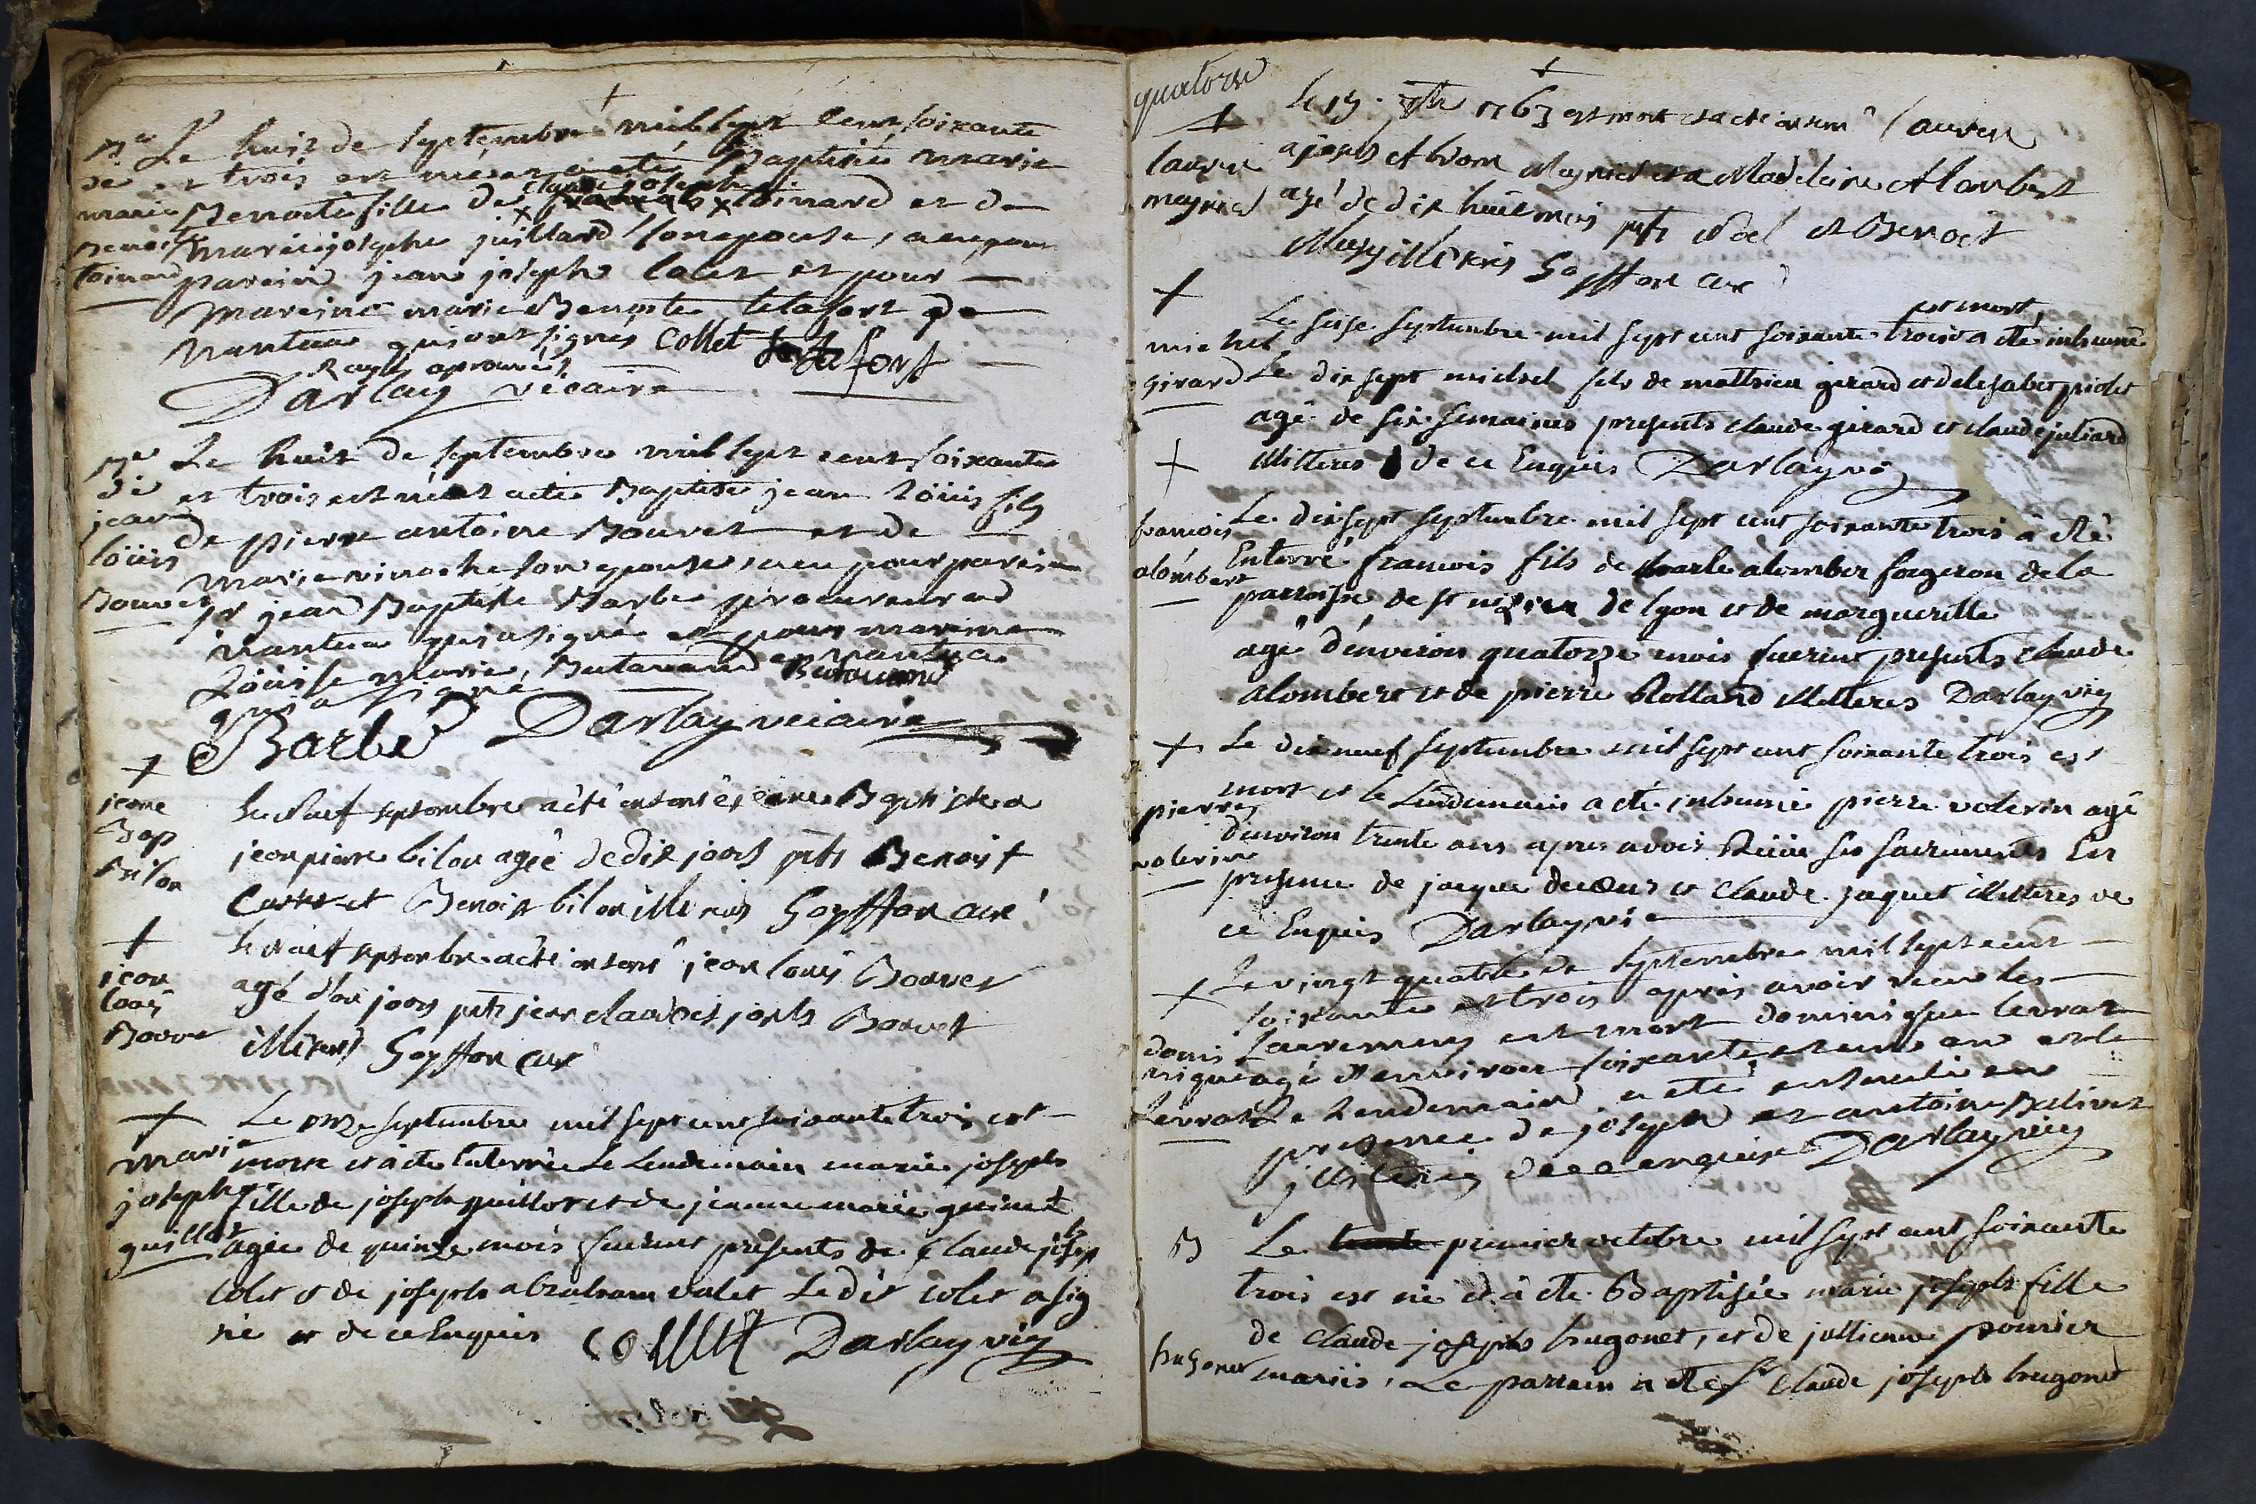 Le huit de septembre mil sept cent soixante
et trois est née et a eté Baptisée marie
Benoite fille de claude joseph toinard et de
marie josephe juillard son epouse, a eu pour
parein jean joseph colet et pour
mareine marie Benoite telafort de
nantua qui ont signés Collet telafort
Rayés aprouvés
Darlay vicaire
marie
Benoite
toinard
Le huit de septembre mil sept cent soixante
et trois est né et a eté Baptisé jean loüis fils
de pierre antoine Bouvet et de
marie son epouse, a eu pour parein
sr jean Baptiste Barbe procureur a
nantua qui a signé et pour mareine
Loüise marie Butavand de nantua
qui a signé
Barbe Darlay vicaire
jean
loüis
Bouvet
Le neuf septembre a été enterré jeane Baptiste a
jean pierre bilon agée de dix jours pts Benoist
et Benoist bilon illiterés Goyffon curé
jeane
Bap
Bilon
Le neuf septembre a été enterré jean louis Bouvet
agé d'un jours pts jean claude et josph Bouvet
illiterés Goyffon curé
jean
louis
Bouve
Le onze septembre mil sept cent soixante trois est
morte et a eté enterrée Le Lendemain marie joseph
fille de joseph guillot et de jeanne marie guinet
agée de quinze mois furent presents de claude joseph
colet et de joseph abraham colet Ledit colet a sig
né et de ce Enquis Collet Darlay vic
marie
josephe
guillot
quatorze
Le 15 7bre 1763 est mort et a eté enterré Laurent
a josph Meyniel et a Madeleine Alombert
agé de dix huit mois pts Noel et Benoit
illiterés Goyffon curé
Laurent
meyniel
Le seise septembre mil sept cent soixante trois est mort, a eté inhumé
Le dix sept michel fils de mathieu girard et
agé de six semaines presents claude girard et claude juliard
illiteres de ce Enquis Darlay vic
michel
girard
Le dix sept septembre mil sept cent soixante trois à eté
Enterré francois fils de charle alomber forgeron de la
parroisse de st nizier de lyon et de marguerille
agé d'environ quatorze mois furent presents Claude
alombert et de pierre Rolland illiteres Darlay vic
francois
alombert
Le dix neuf septembre mil sept cent soixante trois est
mort et le Lendemain a eté inhumé pierre volerin agé
d'environ trente ans apres avoir Reçue ses sacrements En
presence de jacque et claude jaquet illiteres de
ce Enquis Darlay vic
pierre
volerin
Le vingt quatre de septembre mil sept cent
soixante et trois après avoir reçu les
sacremens est mort dominique levrat
agé d'environ soixante et un an et le
Le Lendemain a eté en
presence de joseph et antoine
illiterés de ce enquis Darlay vic
domi
nique
Levrat
B Le premier octobre mil sept cent soixante
trois est né et à eté Baptisée marie joseph fille
de claude joseph hugonet, et de jullienne
mariés, Le parrain a eté sr claude joseph hugonet
hugonet